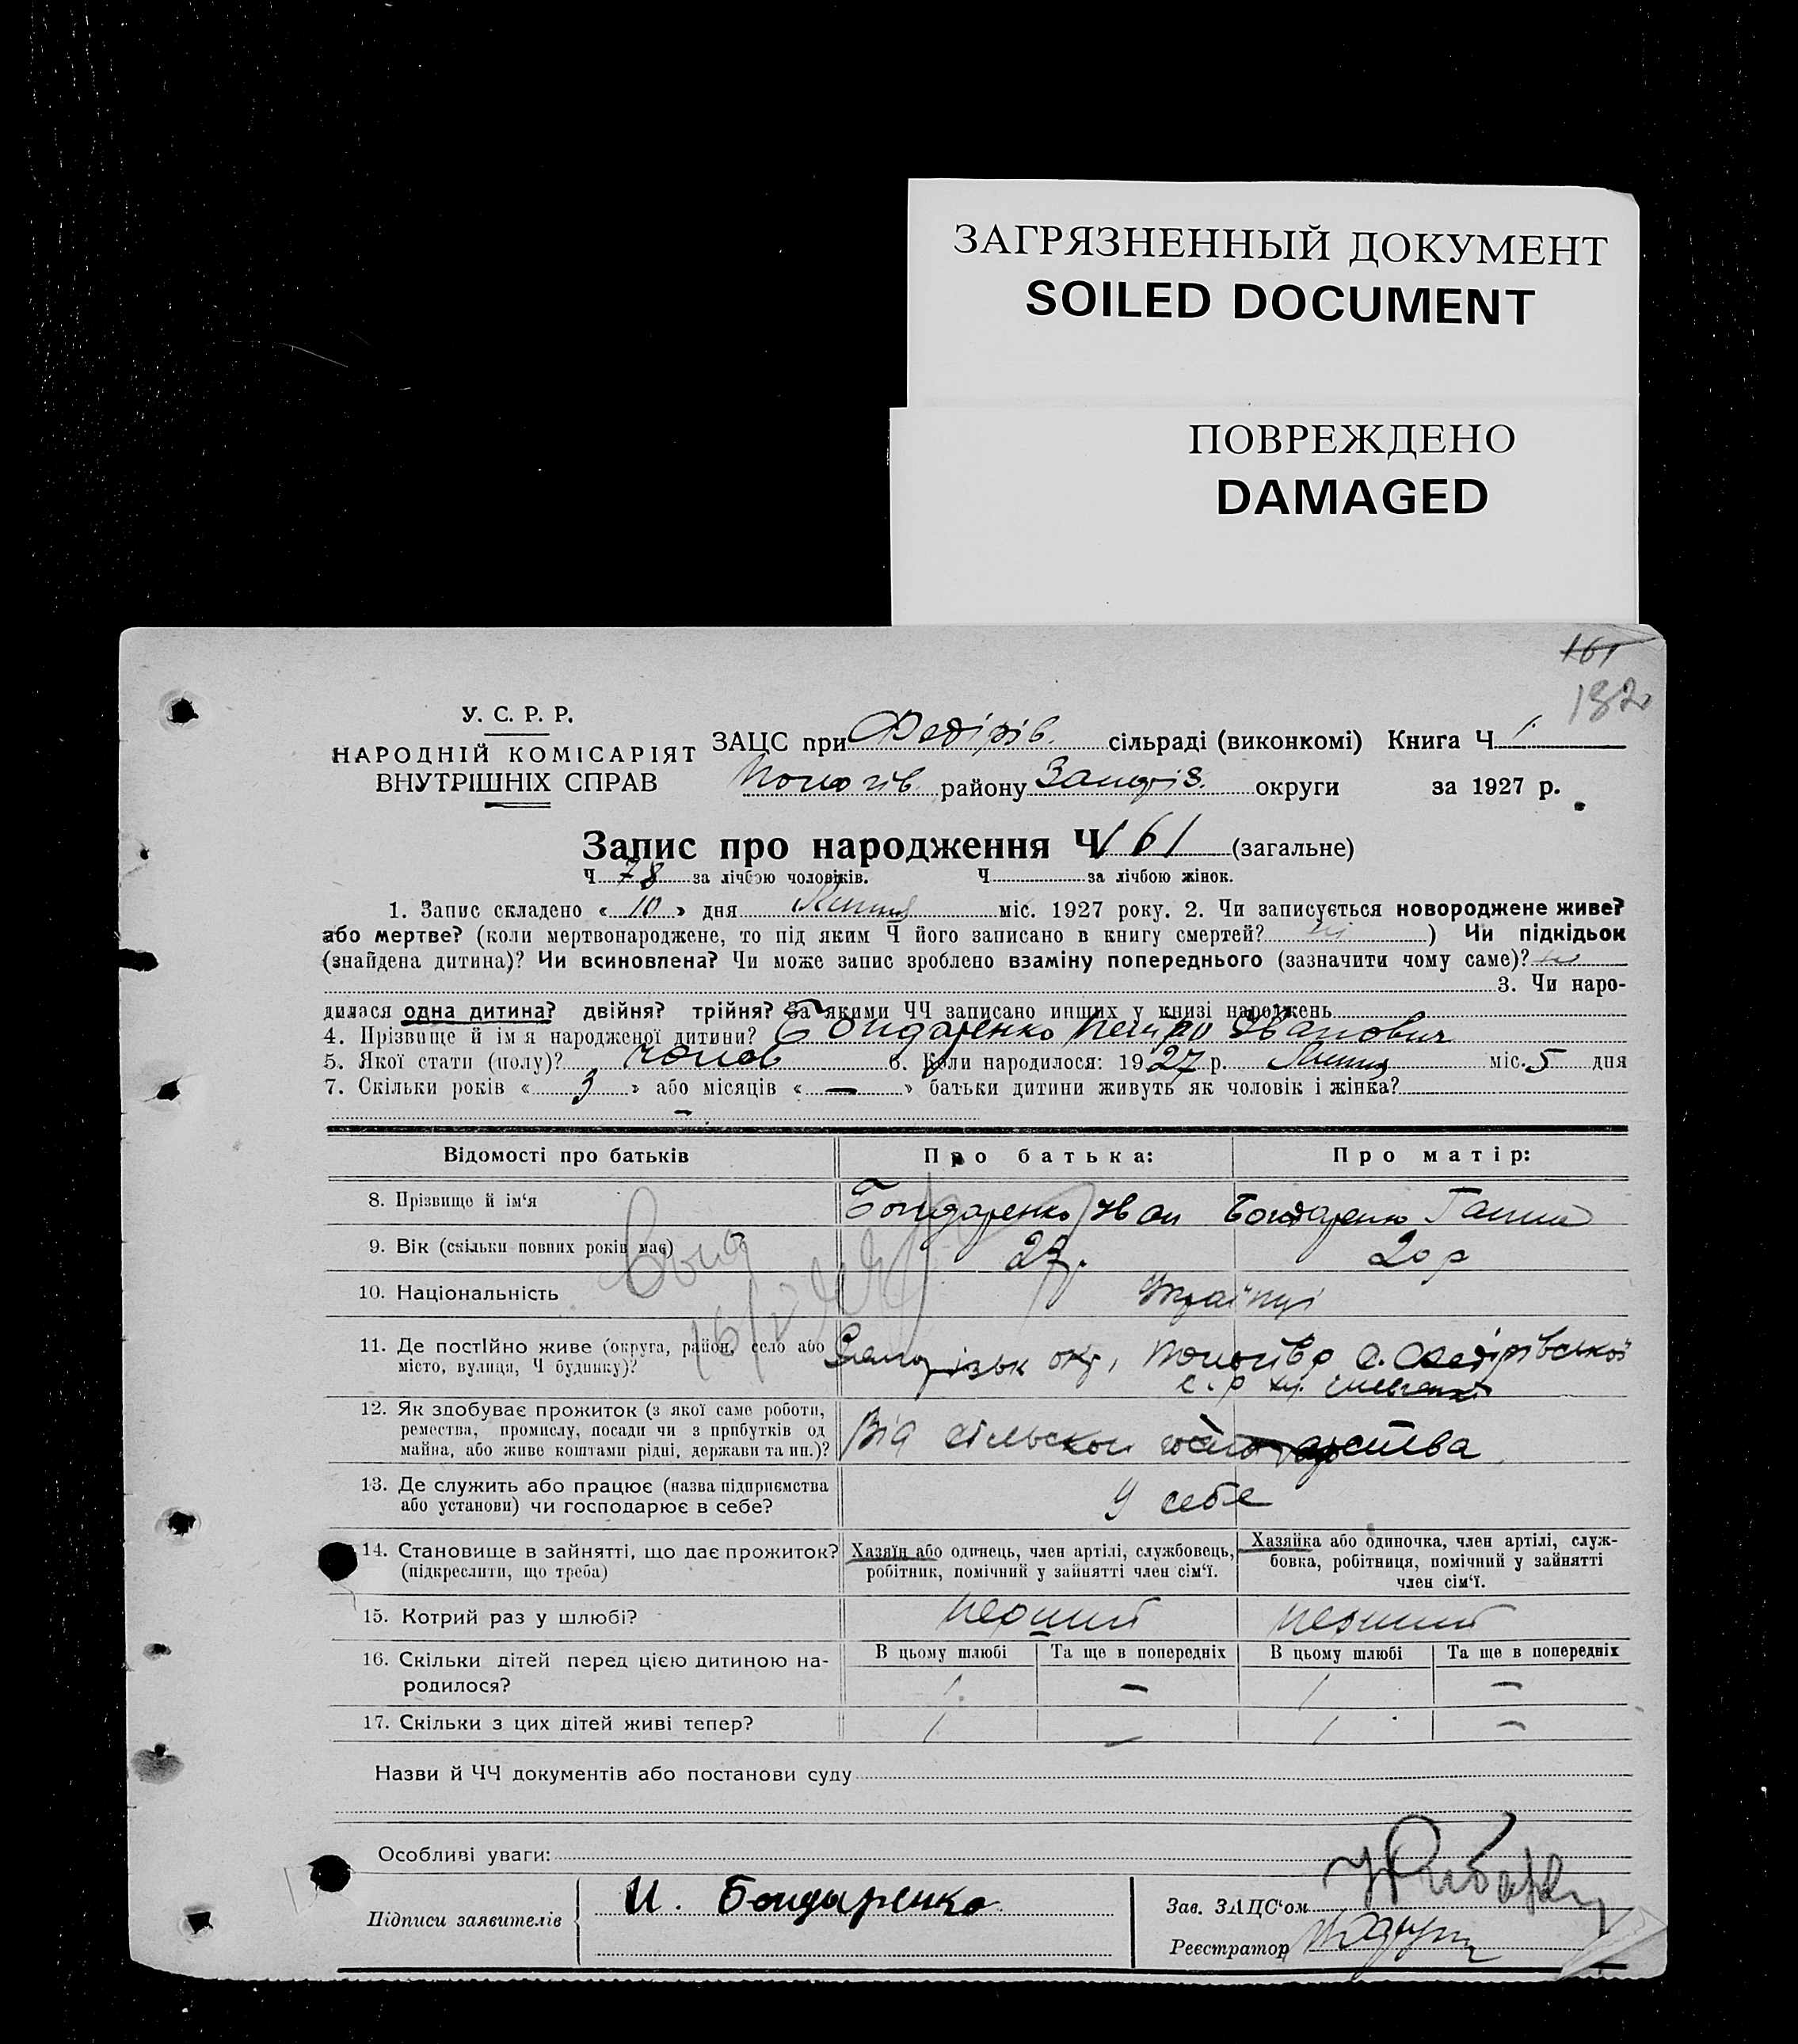 ЗАГРЯЗНЕННЫЙ ДОКУМЕНТ
SOILED DOCUMENT
ПОВРЕЖДЕНО
DAMAGED
161
182
У. С. Р. Р.
НАРОДНІЙ КОМІСАРІЯТ
ВНУТРІШНІХ СПРАВ
ЗАЦС при Федірів. сільраді (виконкомі) Книга Ч 1.
Пологів. району Запоріз. округи за 1927 р.
Запис про народження Ч 161 (загальне)
Ч 78 за лічбою чоловіків. Ч за лічбою жінок.
1. Запис складено « 10 » дня Липня міс. 1927 року. 2. Чи записується новороджене живе?
або мертве? (коли мертвонароджене, то під яким Ч його записано в книгу смертей? ні ) Чи підкідьок
(знайдена дитина)? Чи всиновлена? Чи може запис зроблено взаміну попереднього (зазначити чому саме)? ні
3. Чи наро-
дилася одна дитина? двійня? трійня? За якими ЧЧ записано инших у книзі народжень
4. Прізвище й ім я народженої дитини? Бондаренко Петро Іванович
5. Якої стати (полу)? чолов 6. Коли народилося: 1927 р. Липня міс. 5 дня
7. Скільки років « 3 » або місяців « — » батьки дитини живуть як чоловік і жінка?
Відомості про батьків Про батька: Про матір:
8. Прізвище й ім'я Бондаренко Іван Бондаренко Ганна
9. Вік (скільки повних років має) 27. 20 р
10. Національність Українці
11. Де постійно живе (округа, район, село або
місто, вулиця, Ч будинку)? окр, Пологів р с. Федірівської
с. р
12. Як здобуває прожиток (з якої саме роботи,
ремества, промислу, посади чи з прибутків од
майна, або живе коштами рідні, держави та ин.)? Від сільского господарства
13. Де служить або працює (назва підприємства
або установи) чи господарює в себе? У себе
14. Становище в зайнятті, що дає прожиток?
(підкреслити, що треба)
Хазяїн або одинець, член артілі, службовець,
робітник, помічний у зайнятті член сім'ї.
Хазяйка або одиночка, член артілі, служ-
бовка, робітниця, помічний у зайнятті
член сім'ї.
15. Котрий раз у шлюбі? перший перший
16. Скільки дітей перед цією дитиною на-
родилося?
В цьому шлюбі Та ще в попередніх В цьому шлюбі Та ще в попередніх
1. — 1 —
17. Скільки з цих дітей живі тепер? 1. — 1 —
Назви й ЧЧ документів або постанови суду
Особливі уваги:
Підписи заявителів И. Бондаренко
Зав. ЗАЦС'ом
Реєстратор